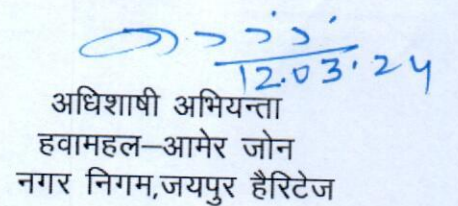 12.03.24
अधिशाषी अभियन्ता
हवामहल–आमेर जोन
नगर निगम,जयपुर हैरिटेज